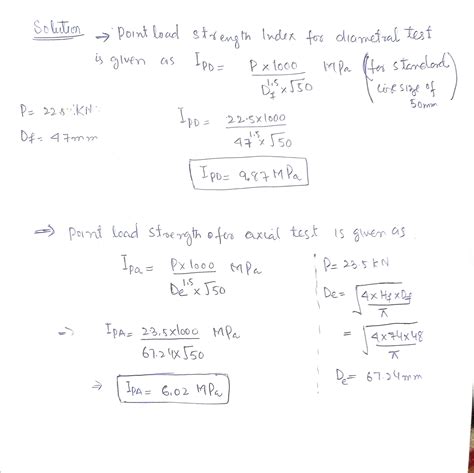 Solution → Point load strength Index for diametral test
is given as I_PD = P×1000 / D_f^1.5 × √50 MPa (for standard core size of 50mm)
P = 22.5 KN
D_f = 47mm
I_PD = 22.5×1000 / 47^1.5 × √50
I_PD = 9.87 MPa
⇒ Point load strength for axial test is given as
I_Pa = P×1000 / De^1.5 × √50 MPa
P = 23.5 KN
De = √(4×Hf×Df / π)
= √(4×74×48 / π)
De = 67.24mm
⇒ I_PA = 23.5×1000 / 67.24×√50 MPa
⇒ I_PA = 6.02 MPa